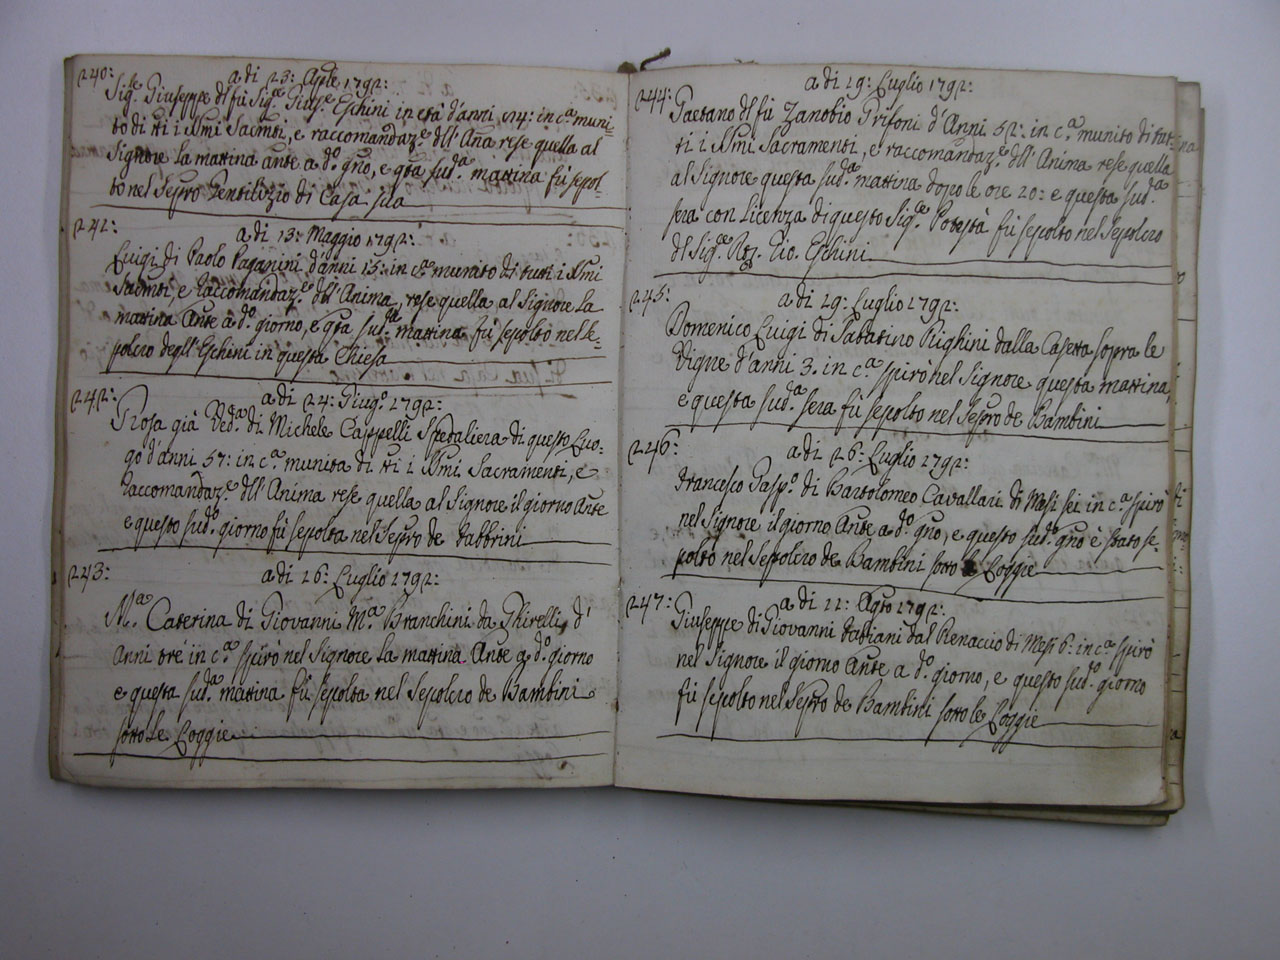 240:
a di 23: Aple 1792:
Sig.e Giuseppe di fù Sig.e Gius.e Eschini in età d'anni 24: in c.a muni-
to di tti i SSmi Sacmti, e raccomandaz.e dll'Ana rese quella al
Signore la mattina ante a d.o gno, e qta sud.a mattina fù sepol-
to nel Sepro Gentilizio di Casa sua
241:
a di 13: Maggio 1792:
Luigi di Paolo Paganini d'anni 15: in c.a munito di tutti i SSmi
Sacmti, e raccomandaz.e dell'Anima, rese quella al Signore la
mattina Ante a d.o giorno, e qta sud.a mattina fù sepolto nel Se-
polcro degll'Eschini in questa Chiesa
242:
a di 24: Giug.o 1792:
Rosa già Ved.a di Michele Cappelli Spedaliera di questo Luo-
go d'anni 57: in c.a munita di tti i SSmi Sacramenti, e
raccomandaz.e dll'Anima rese quella al Signore il giorno Ante
e questo sud.o giorno fù sepolta nel Sepro de Fabbrini
243:
a di 26: Luglio 1792:
M.a Caterina di Giovanni M.a Branchini da Ghirelli d'
Anni tre in c.a spirò nel Signore la mattina Ante a d.o giorno
e questa sud.a mattina fù sepolta nel Sepolcro de Bambini
sotto le Loggie
244:
a di 29: Luglio 1792:
Gaetano dl fù Zanobio Grifoni d'Anni 52: in c.a munito di tut-
ti i SSmi Sacramenti, e raccomandaz.e dll'Anima rese quella
al Signore questa sud.a mattina dopo le ore 20: e questa sud.a
sera con Licenza di questo Sig.e Potestà fù sepolto nel Sepolcro
dl Sig.e Gio. Eschini
245:
a di 29: Luglio 1792:
Domenico Luigi di Sabatino Righini dalla Casetta sopra le
Vigne d'anni 3. in c.a spirò nel Signore questa mattina,
e questa sud.a sera fù sepolto nel Sepro de Bambini
246:
a di 26: Luglio 1792:
Francesco Gasp.o di Bartolomeo Cavallari di Mesi sei in c.a spirò
nel Signore il giorno Ante a d.o gno, e questo sud.o gno è stato se-
polto nel Sepolcro de Bambini sotto le Loggie
247:
a di 11: Agto 1792:
Giuseppe di Giovanni Fabiani dal Renaccio di Mesi 6: in c.a spirò
nel Signore il giorno Ante a d.o giorno, e questo sud.o giorno
fù sepolto nel Sepro de Bambini sotto le Loggie